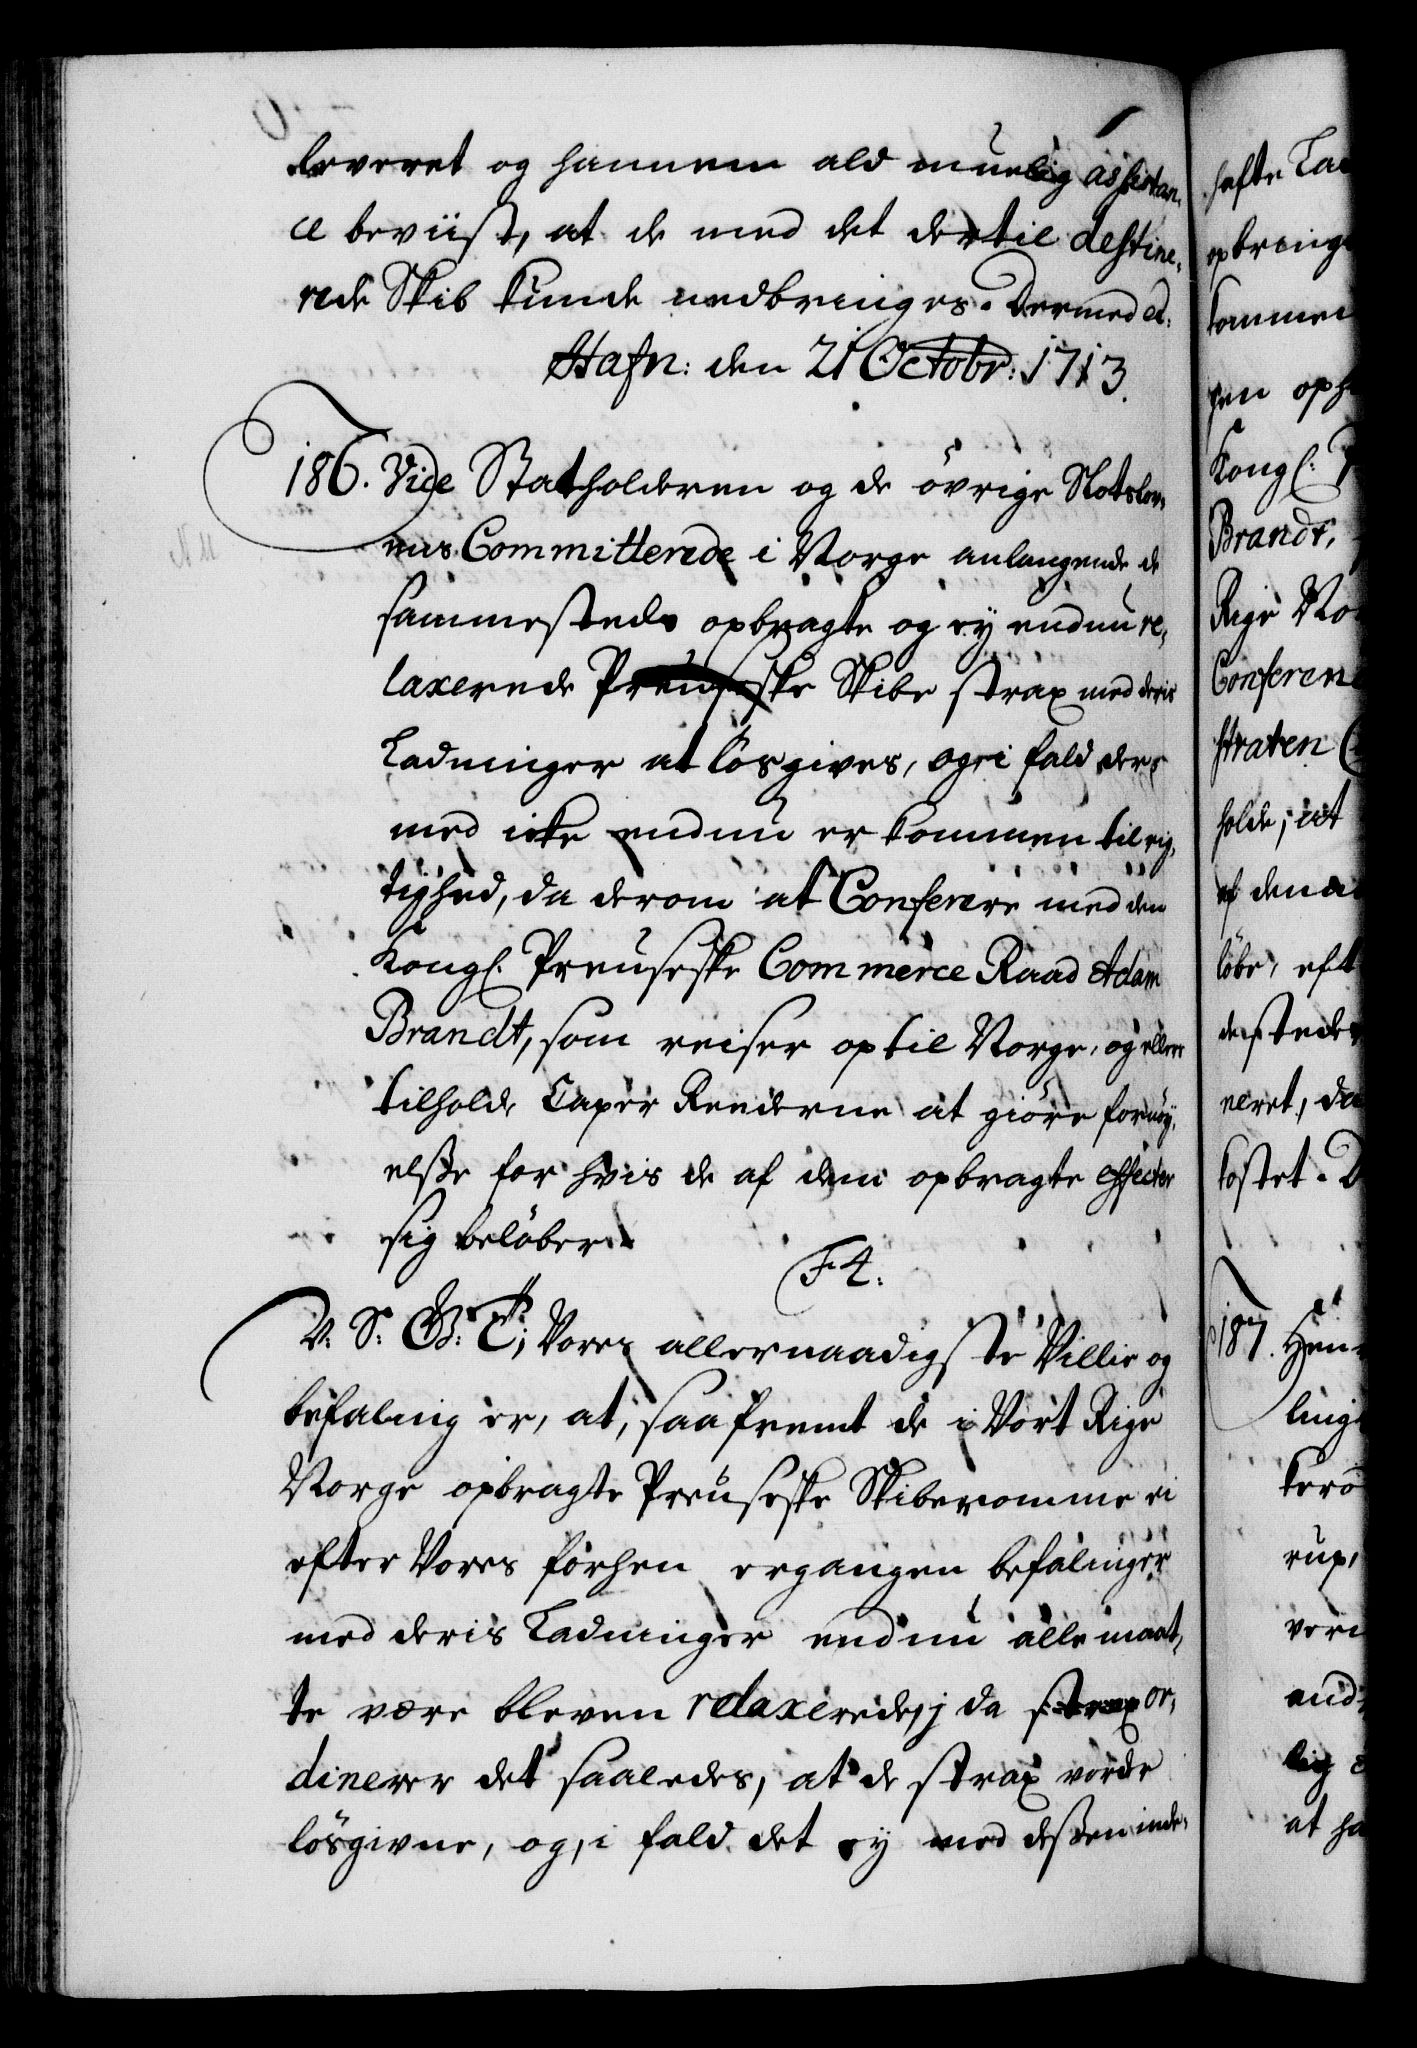 leveret og hannem ald muelig assistan-
ce beviist, at de med det dertil destine-
rede Skib kunde nedbringes. Dermed etc:
Hafn: den 21 Octobr: 1713.
186. Vice Statholderen og de övrige Slotslov-
ens Committerede i Norge anlangende de
sammesteds opbragte og ey endnu re-
laxerede Preuseske Skibe strax med deris
Ladninger at lösgives, og i fald der-
med icke endnu er kommen til rig-
tighed, da derom at Conferere med den
Kongl. Preuseske Commerce Raad Adam
Brandt, som reiser op til Norge, og ellers
tilholde Caper Reederne at giöre fornöy-
elsse for hvis de af dem opbragte effecter
sig belöber.
F4.
V. S. G. T; Vores allernaadigste Villie og
befaling er, at, saafremt de i Vort Rige
Norge opbragte Preuseske Skiberomme ei
efter Vores forhen ergangen befalinger
med deris Ladninger endnu alle maat-
te være bleven relaxerede, J da strax or-
dinerer det saaledes, at de strax vorde
lösgivne, og, i fald det ey med dessen inde-
hafte La
opbringe
kommen
hen oph
Kongl:
Brandt,
Rige No
Conferen
straten
holde, at
af den
löbe, eft
destede
neret, da
kostet. D
187. Hen
ling
kerö
rup,
vere
and
lig
at ha